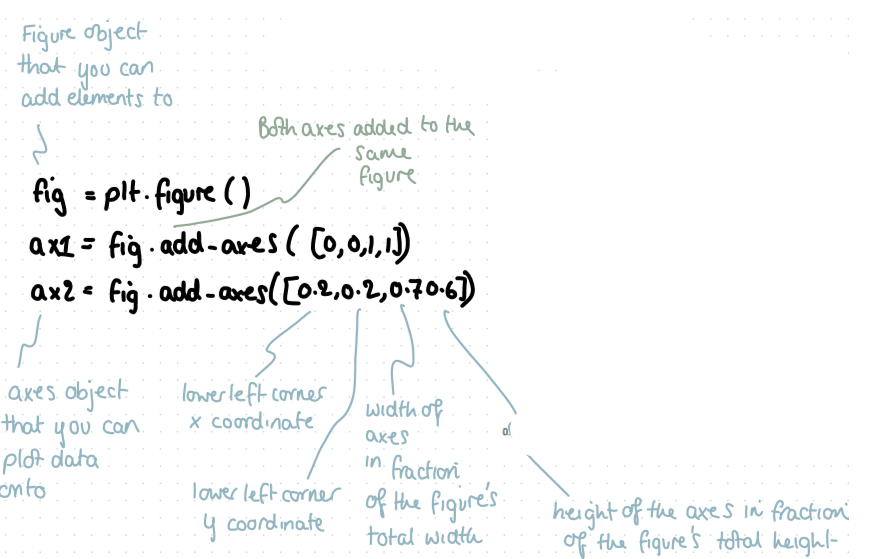 Figure object
that you can
add elements to
Both axes added to the
same
figure
fig = plt.figure()
ax1 = fig.add-axes([0,0,1,1])
ax2 = fig.add-axes([0.2,0.2,0.70.6])
axes object
that you can
plot data
onto
lower left corner
x coordinate
lower left corner
y coordinate
width of
axes
in fraction
of the figure's
total width
height of the axes in fraction
of the figure's total height